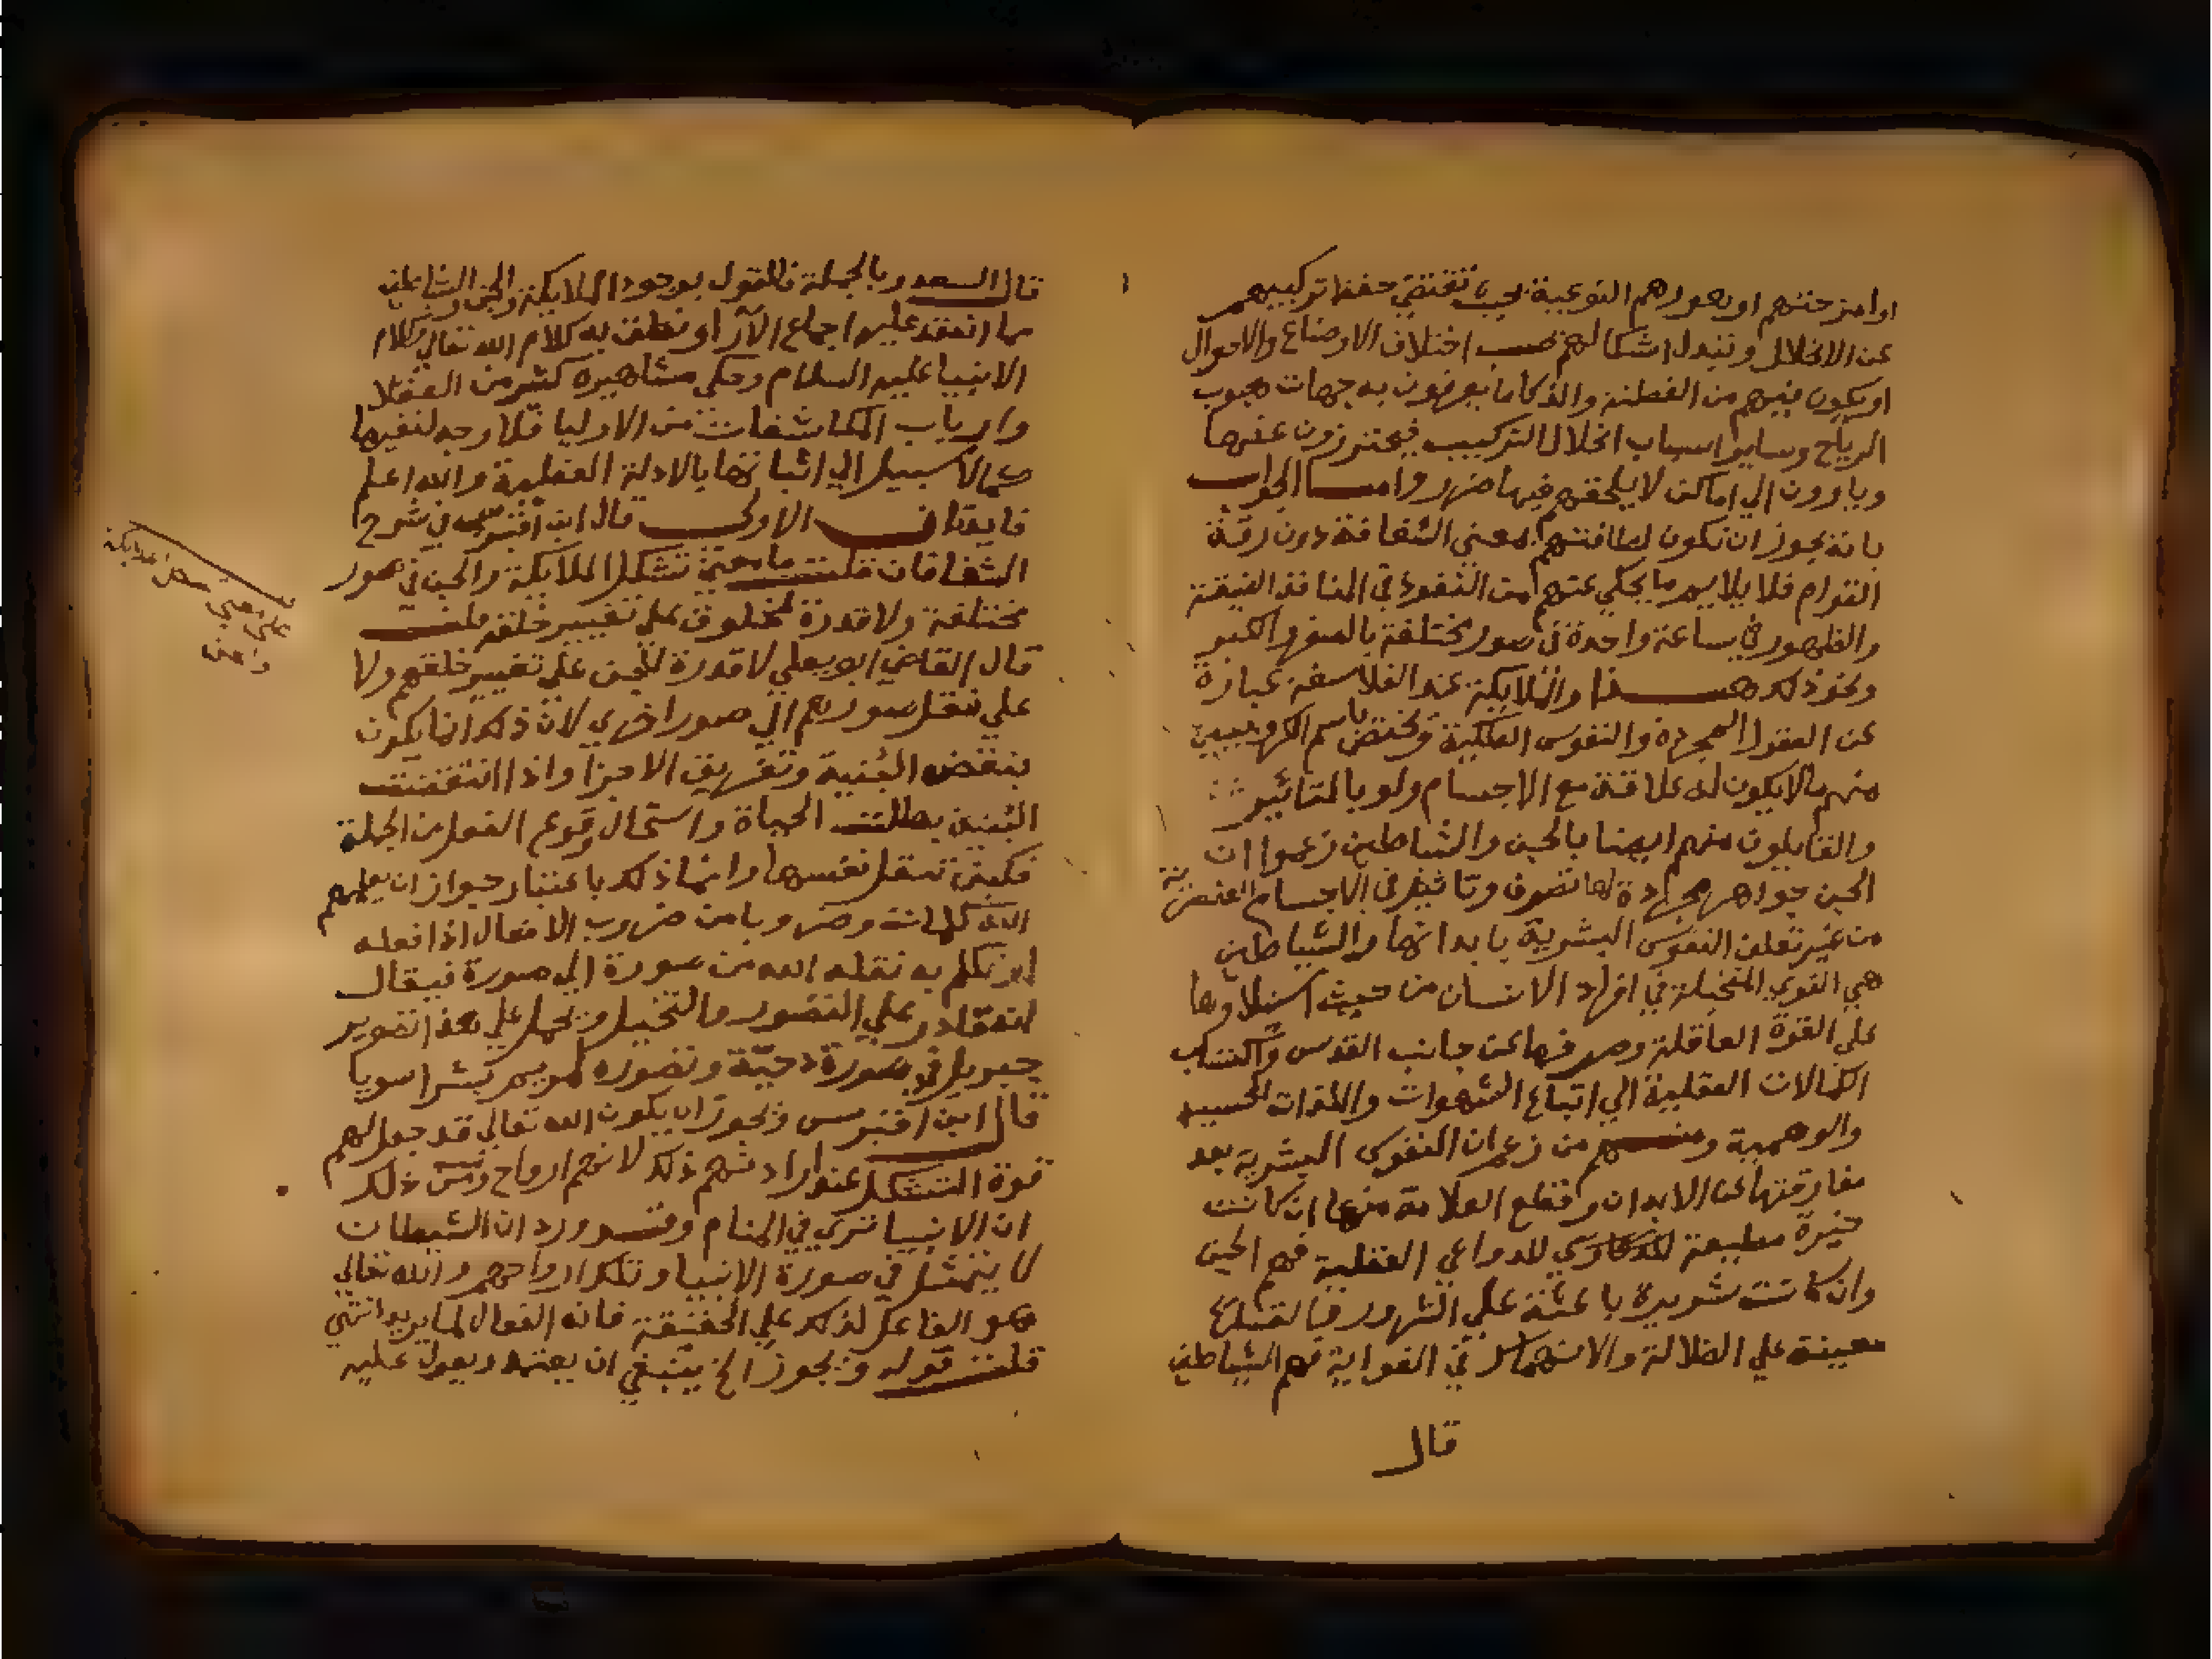 او امزجتهم او صورهم النوعية بحيث تقتضي حفظ تركيبهم
عن الانحلال وتتبدل اشكالهم بحسب اختلاف الاوضاع والاحوال
او يكون فيهم من الفطنة والذكا ما يعرفون به جهات هبوب
الرياح وساير اسباب انحلال التركيب فيحترزون عنها
وياوون الي اماكن لا يلحقهم فيها ضرر واما الجواب
بانه يجوز ان تكون لطافتهم بمعني الشفافة دون رقة
القوام فلا يلايم ما يحكي عنهم من النفوذ في المنافذ الضيقة
والظهور في ساعة واحدة في صور مختلفة بالصغر والكبر
ونحو ذلك هذا والملايكة عند الفلاسفة عبارة
عن العقول المجردة والنفوس الفلكية وتختص باسم الكروبيين
منهم ما لا يكون له علاقة مع الاجسام ولو بالتاثير
والقايلون منهم ايضا بالجن والشياطين زعموا ان
الجن جواهر مجردة لها تصرف وتاثير في الاجسام العنصرية
من غير تعلق النفوس البشرية بابدانها والشياطين
هي القوي المتخيلة في افراد الانسان من حيث استلاوها
علي القوة العاقلة وصرفها عن جانب القدس واكتساب
الكمالات العقلية الي اتباع الشهوات واللذات الحسية
والوهمية ومنهم من زعم ان النفوس البشرية بعد
مفارقتها عن الابدان وقطع العلاقة منها ان كانت
خيرة مطيعة للدواعي العقلية فهم الجن
وان كانت شريرة باعثة علي الشرور والقبايح
معينة علي الضلالة والانهماك في الغواية فهم الشياطين
قال
قال السعد وبالجملة فالقول بوجود الملايكة والجن والشياطين
مما انعقد عليه اجماع الآرا ونطق به كلام الله تعالي وكلام
الانبيا عليهم السلام وحكي مشاهيره كثير من العقلا
وارباب المكاشفات من الاوليا فلا وجه لنفيها
كما لا سبيل الي اثباتها بالادلة العقلية والله اعلم
فايدتان الاولي قال ابن اقبرس في شرح
الشفا فان قلت ما معني تشكل الملايكة والجن في صور
مختلفة ولا قدرة لمخلوق علي تغيير خلقه قلت
قال القاضي ابو يعلي لا قدرة للجن علي تغيير خلقهم ولا
علي نقل صورهم الي صور اخري لان ذلك انما يكون
بنقض البنية وتفريق الاجزا واذا انتقضت
البنية بطلت الحياة واستحال وقوع الفعل من الجملة
فكيف تنقل نفسها وانما ذلك باعتبار جواز ان يعلمهم
الله كلمات وضروبا من ضروب الافعال اذا فعله
او تكلم به نقله الله من صورة الي صورة فيقال
انه قادر علي التصور والتخييل ويحمل علي هذا تصوير
جبريل في صورة دحية وتصوره لمريم بشرا سويا
قال ابن اقبرس ويجوز ان يكون الله تعالي قد جعل لهم
قوة التشكل عند ارادتهم ذلك لانهم ارواح ومن ذلك
ان الانبيا تري في المنام وقد ورد ان الشيطان
لا يتمثل في صورة الانبيا وتلك ارواحهم والله تعالي
هو الفاعل لذلك علي الحقيقة فانه الفعال لما يريد انتهي
قلت قوله ويجوز الخ ينبغي ان يعتمد ويعول عليه
علي معني تشكل الملايكة
والجن